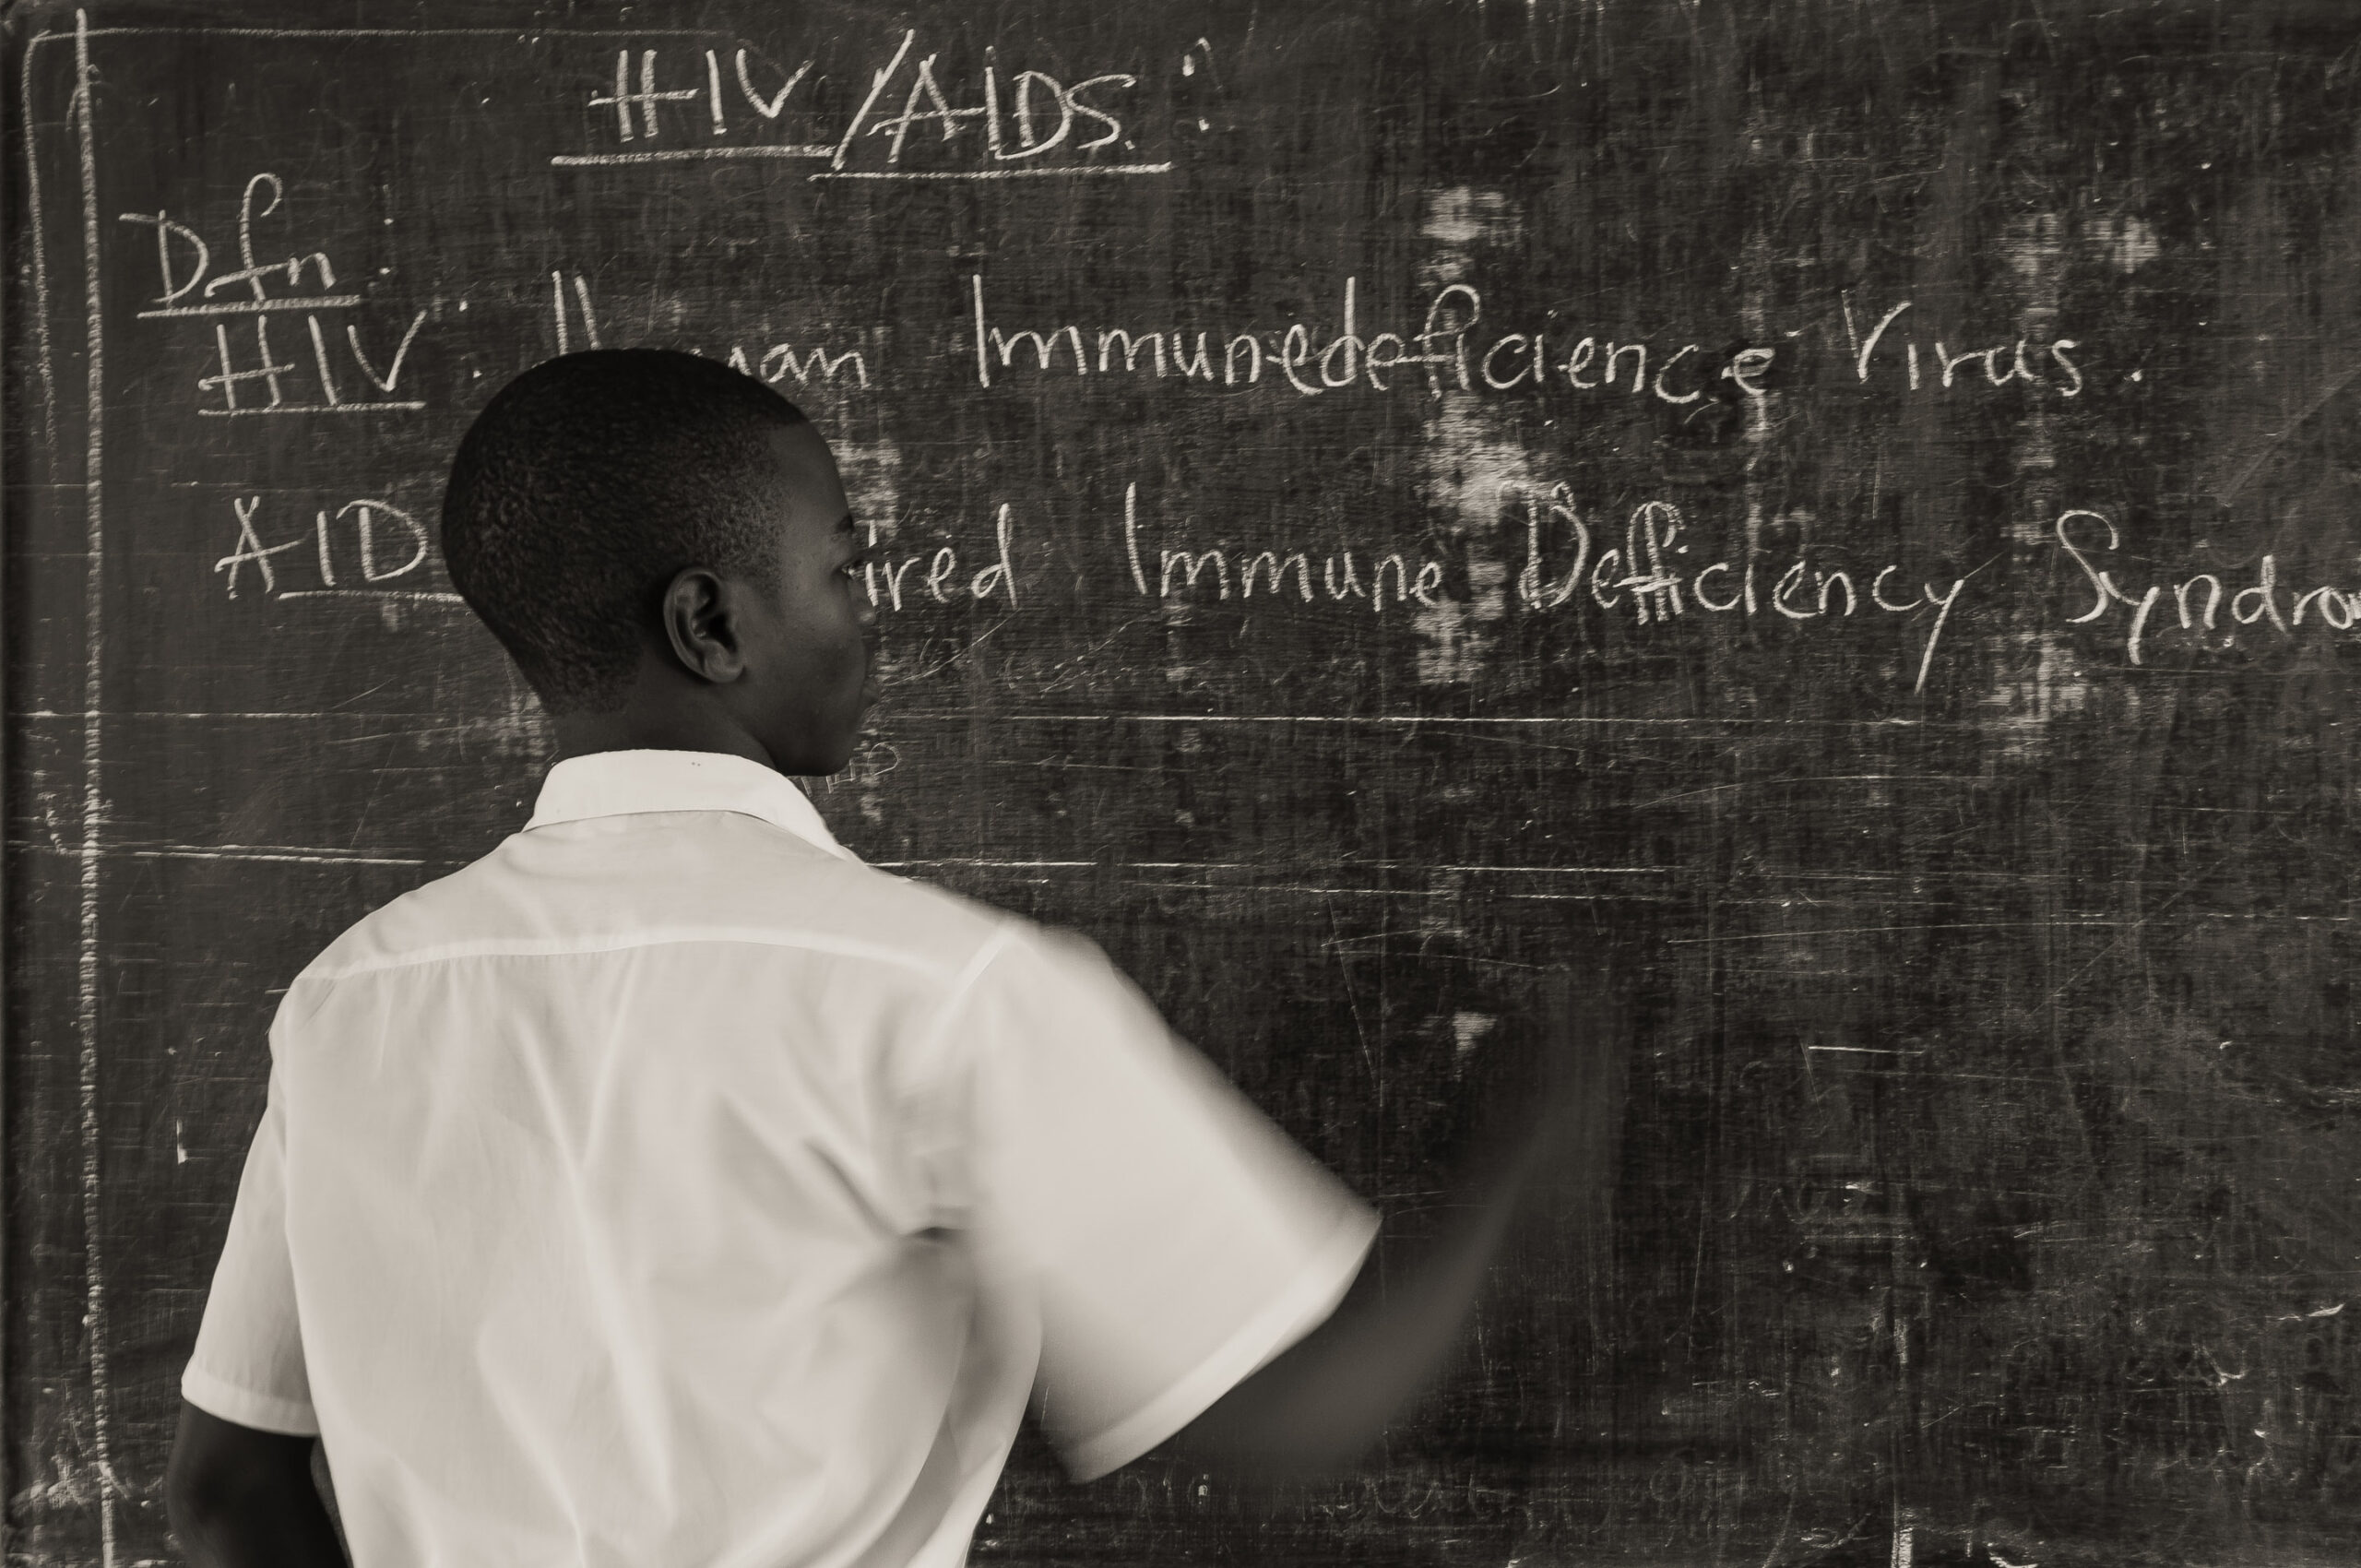 HIV/AIDS:
Dfn:
HIV: Human Immunedeficience Virus.
AID Immune Defficiency